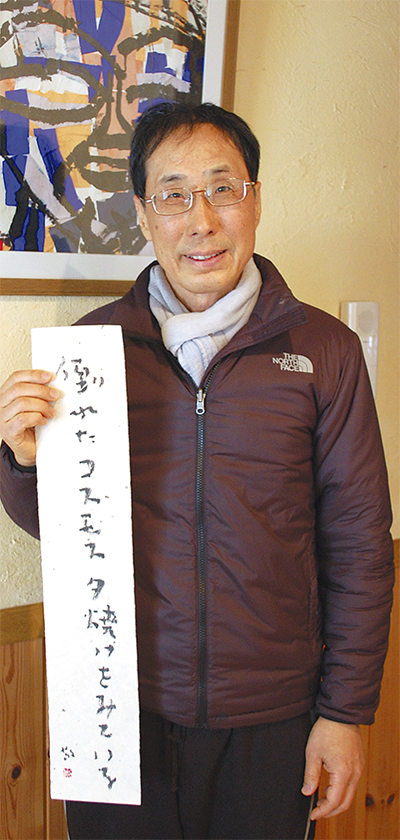 倒れたコスモス夕焼けをみている
THE
NORTH
FACE